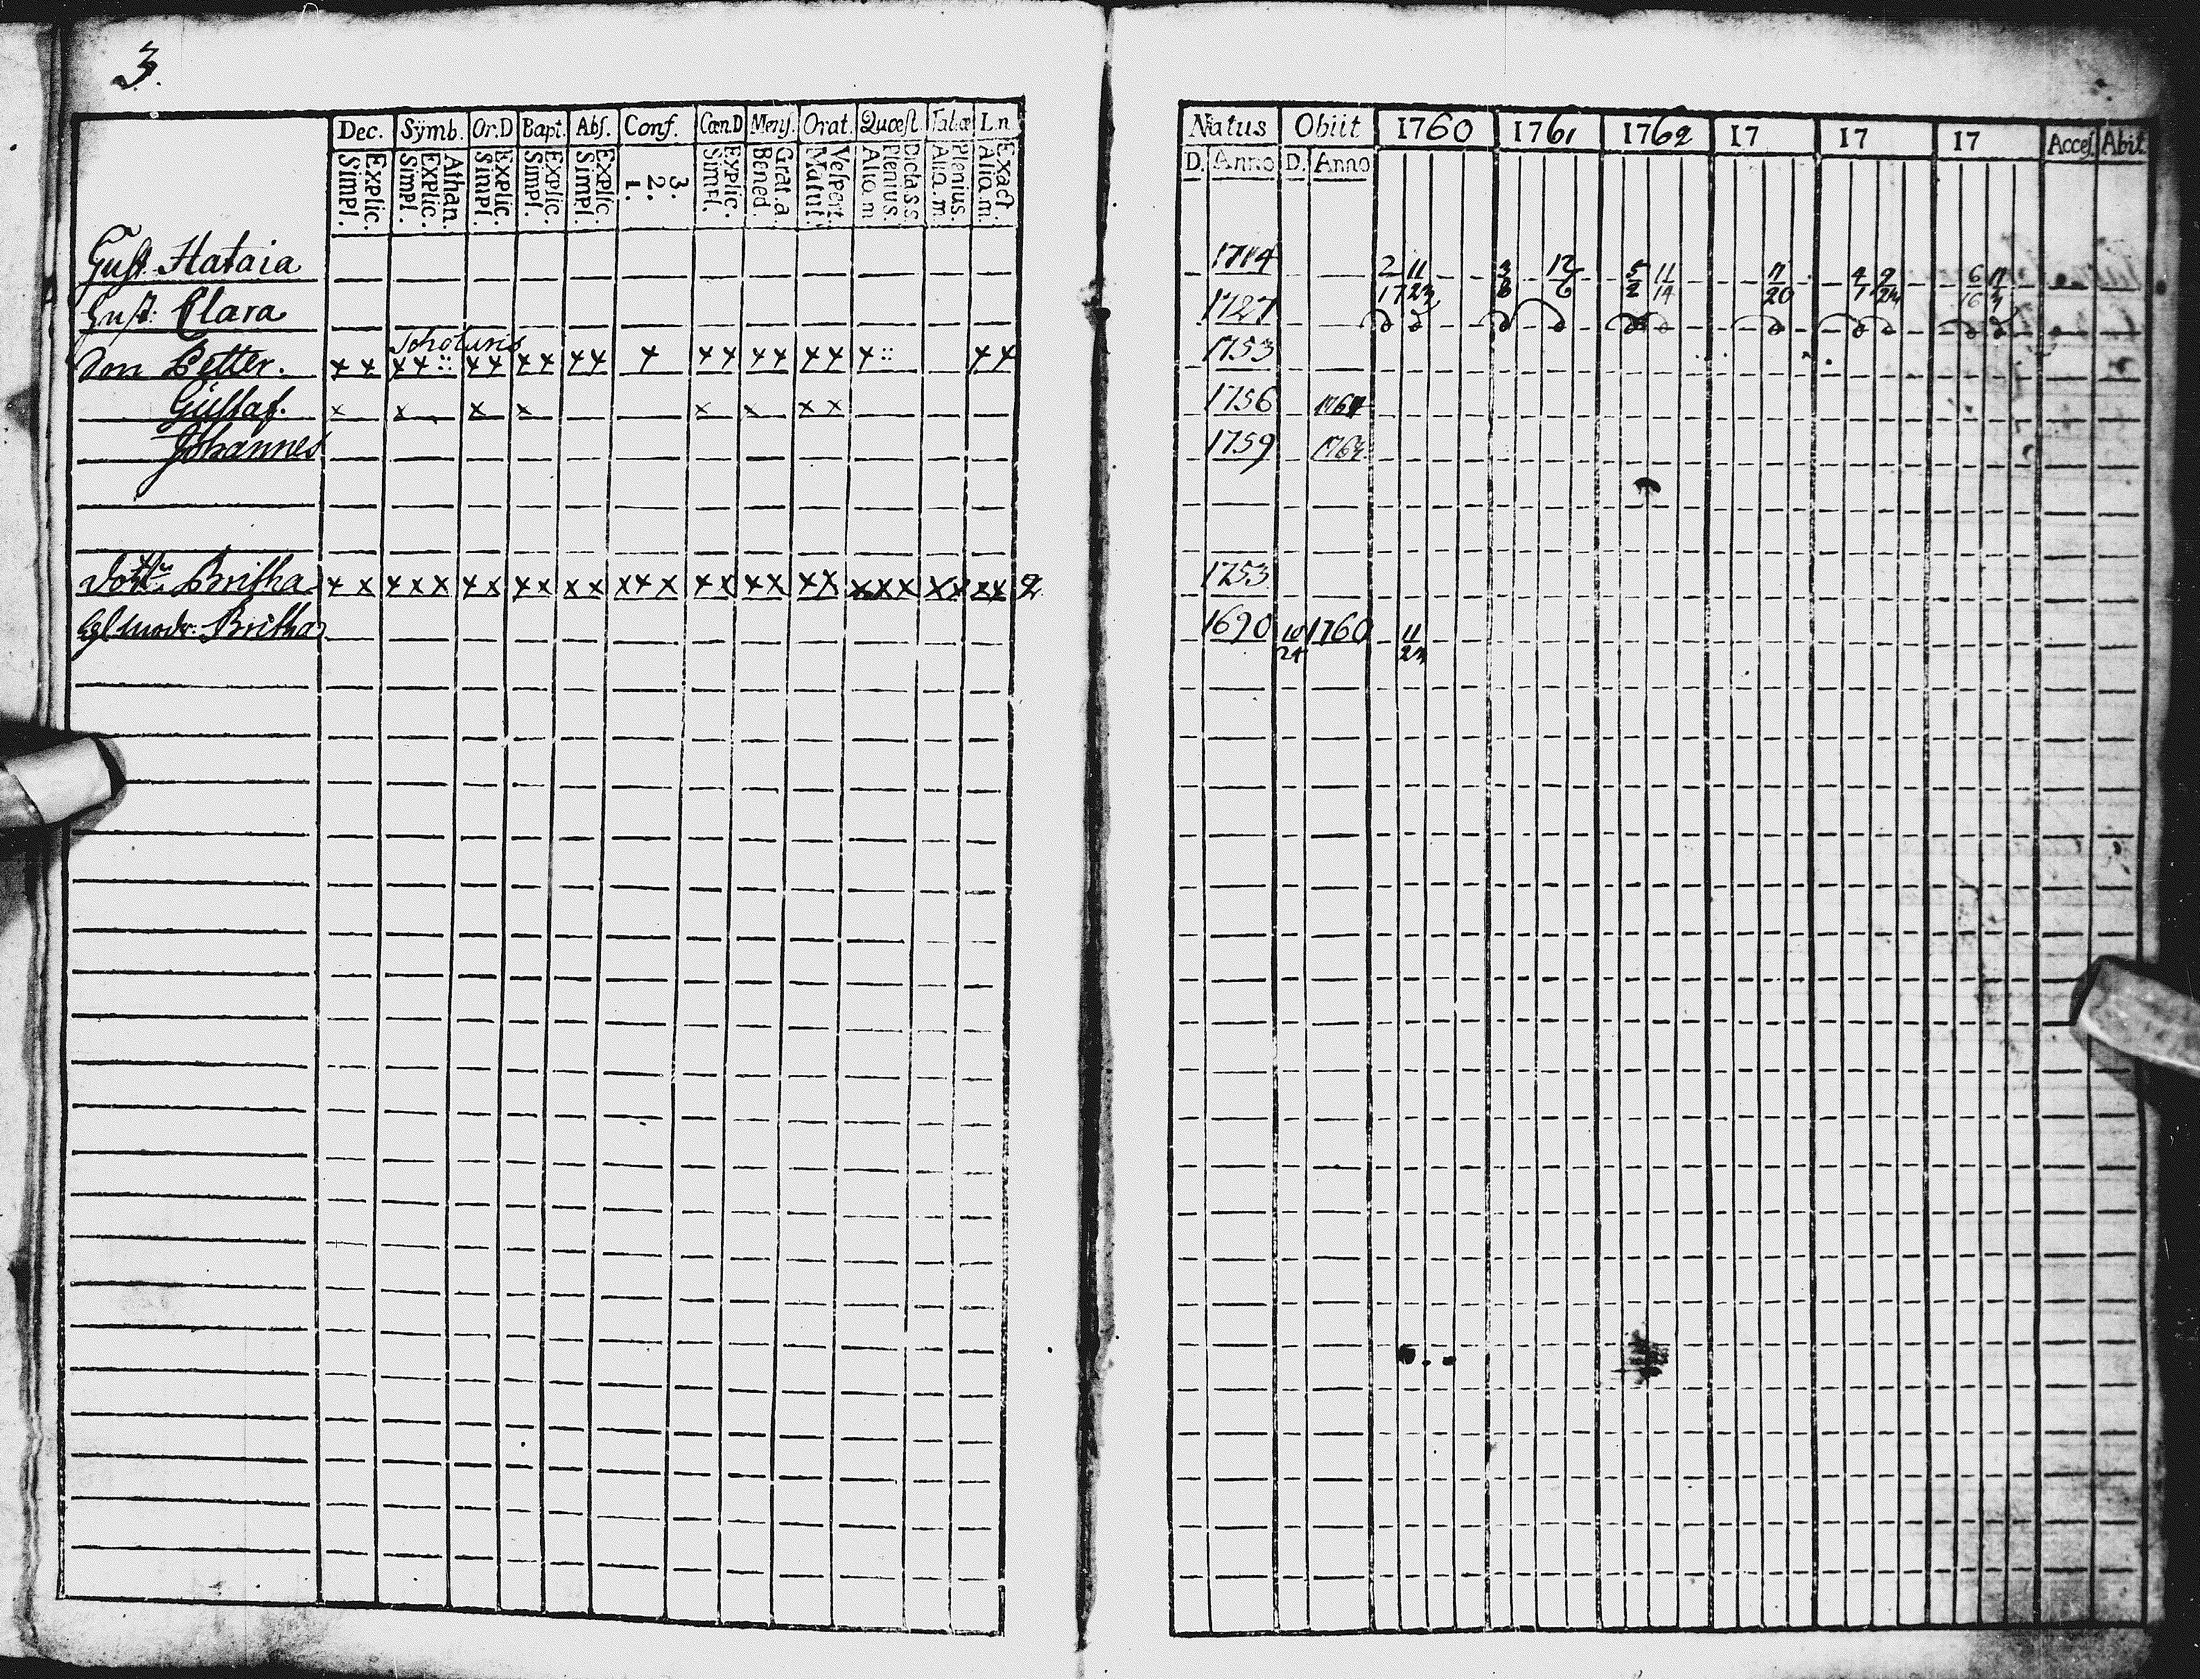 3.
Dec. Sÿmb. Or.D Bapt. Abs. Conf. Cœn.D Mens. Orat. Quæst. Tabulæ Ln.
Simpl. Explic. Simpl. Explic. Athan. Simpl. Explic. Simpl. Explic. Simpl. Explic. 1. 2. 3. Simpl. Explic. Bened. Grat. a. Matut. Vespert. Aliq. m. Plenius. Dicta s.s. Aliq. m. Plenius. Aliq. m. Exact.
Natus Obiit 1760 1761 1762 17 17 17 Acces. Abit.
D. Anno D. Anno
Gust. Hataia 1714 2/17 11/23 3/8 12/6 5/2 11/14 11/20 4/1 9/24 6/16
Gust: Clara 1727
Son Petter. x x x x :: x x x x x x x x x x x x x x :: x x 1753
Gustaf. x x x x x x x x 1756
Johannes 1759
Dott. Britha x x x x x x x x x x x x x x x x x x x x x x x x x x x x 1753
Britha 1690 10/24 1760 11/23